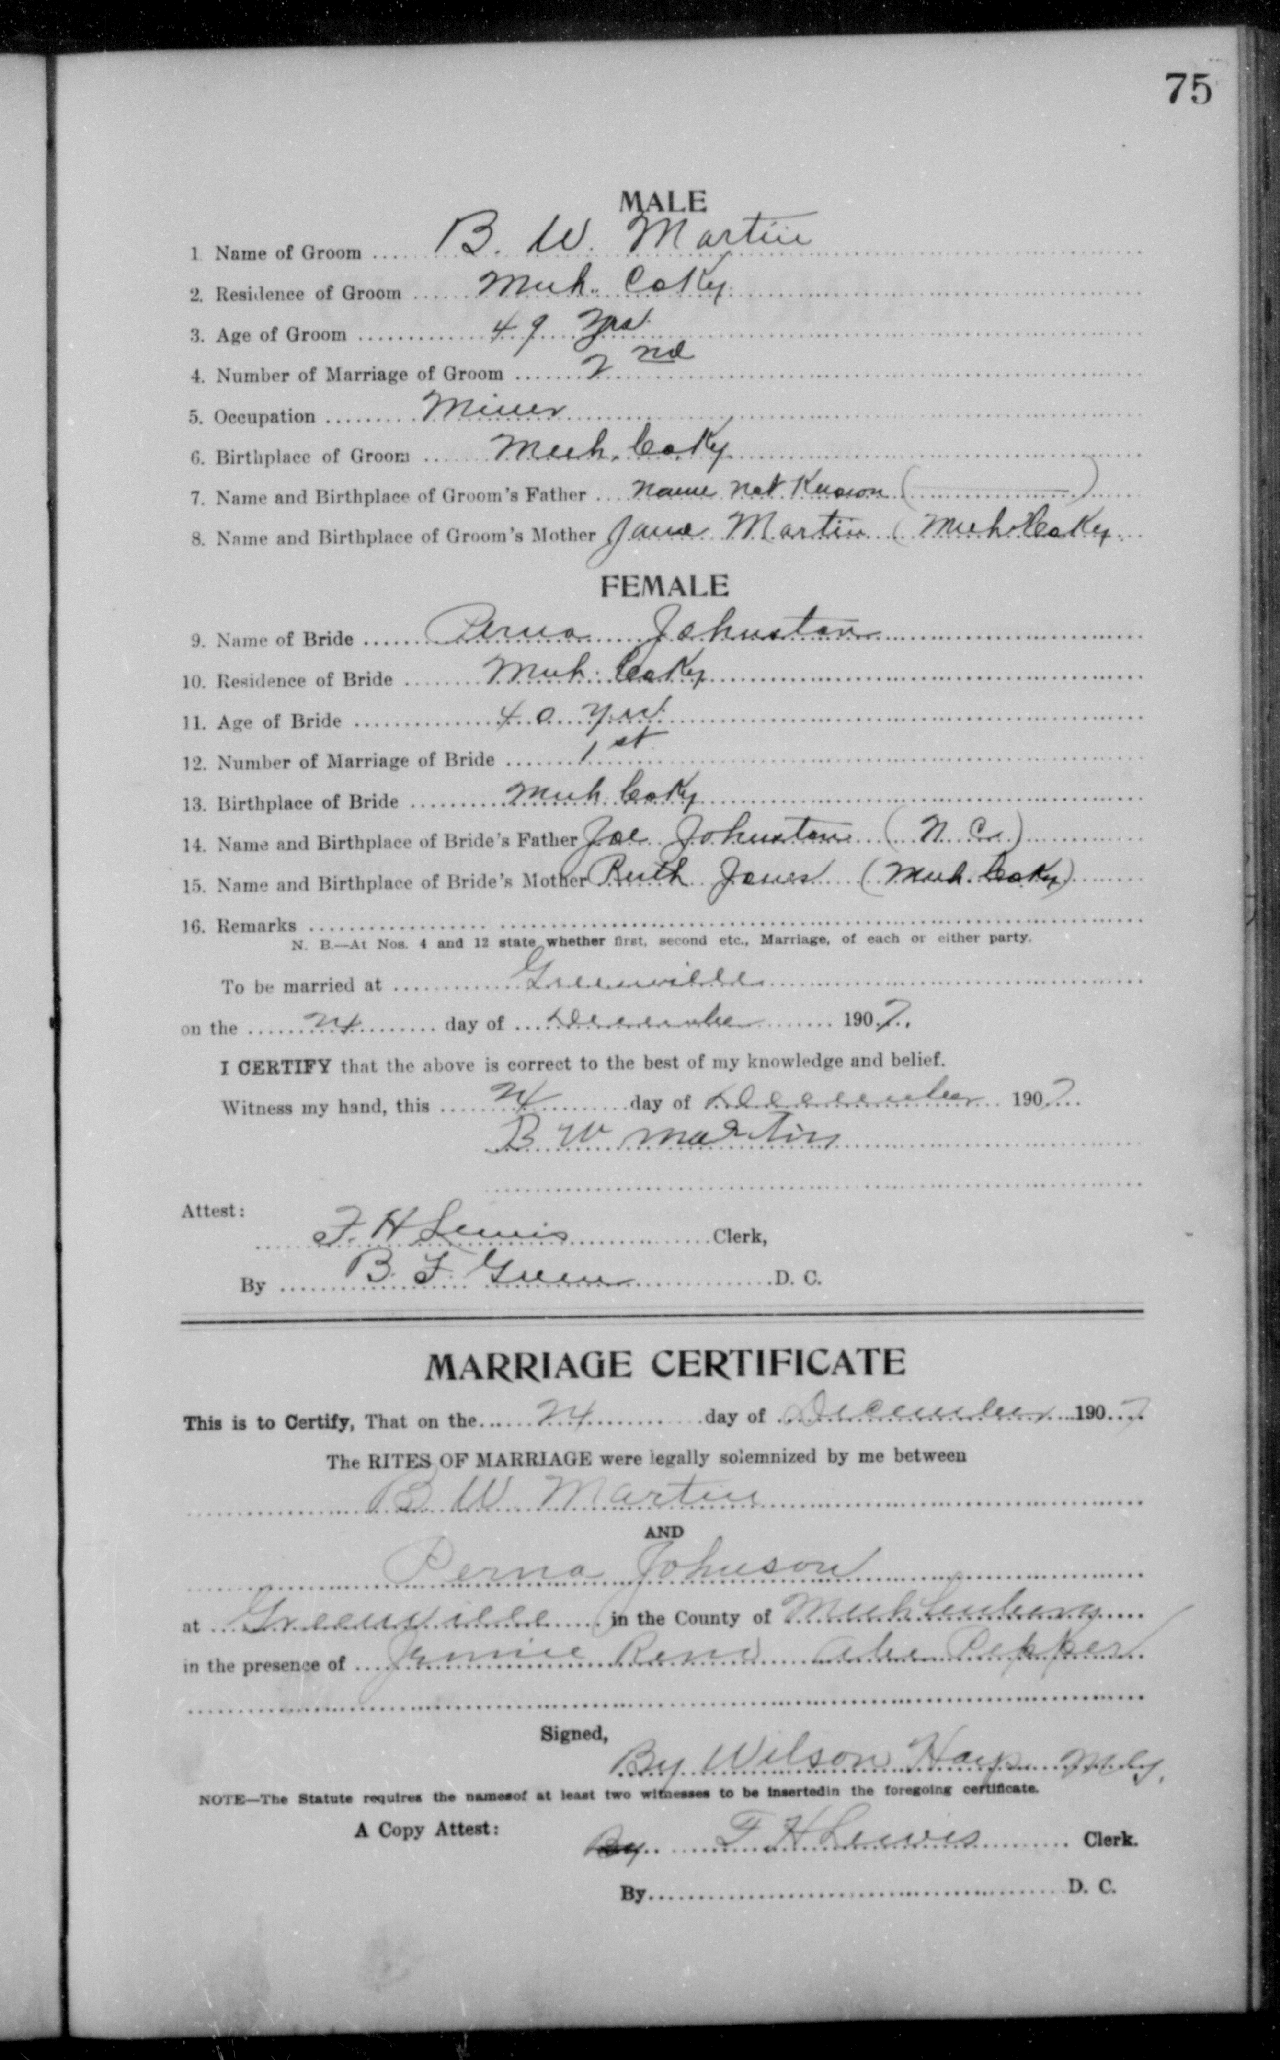 75
MALE
1 Name of Groom B. W. Martin
2. Residence of Groom Muh. Co Ky.
3. Age of Groom 49 yrs
4. Number of Marriage of Groom 2nd
5. Occupation Miner
6. Birthplace of Groom Muh. Co Ky
7. Name and Birthplace of Groom's Father name not Known ( )
8. Name and Birthplace of Groom's Mother Jane Martin ( Muh Co Ky
FEMALE
9. Name of Bride Perna Johnston
10. Residence of Bride Muh. Co Ky
11. Age of Bride 40 yrs
12. Number of Marriage of Bride 1st
13. Birthplace of Bride Muh Co Ky
14. Name and Birthplace of Bride's Father Joe Johnston ( N. C. )
15. Name and Birthplace of Bride's Mother Ruth Jones ( Muh. Co Ky )
16. Remarks
N. B.—At Nos. 4 and 12 state whether first, second etc., Marriage, of each or either party.
To be married at Greenville
on the 24 day of December 1907.
I CERTIFY that the above is correct to the best of my knowledge and belief.
Witness my hand, this 24 day of December 1907
B W Martin
Attest:
F. H Lewis Clerk,
By B. F. Green D. C.
MARRIAGE CERTIFICATE
This is to Certify, That on the 24 day of December 1907
The RITES OF MARRIAGE were legally solemnized by me between
B W Martin
AND
Perna Johnson
at Greenville in the County of Muhlenberg
in the presence of Jennie Reno Abe Pepper
Signed,
By Wilson Hays
NOTE—The Statute requires the namesof at least two witnesses to be insertedin the foregoing certificate.
A Copy Attest:
By F H Lewis Clerk.
By D. C.